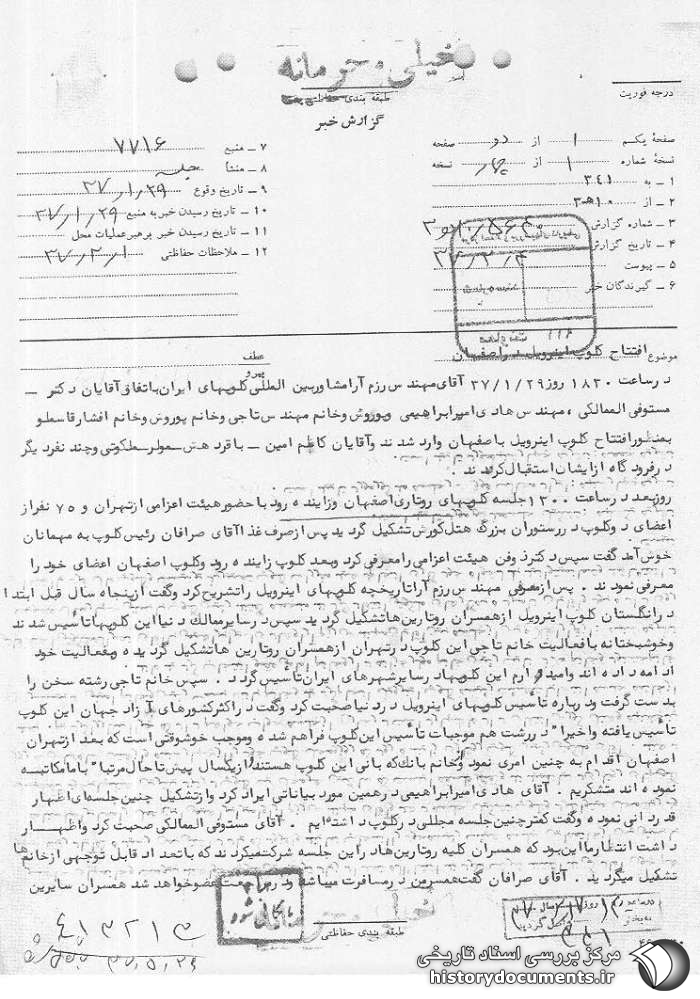 خیلی محرمانه
طبقه بندی حفاظتی
گزارش خبر
درجه فوریت
صفحهٔ یکم ۱ از دو صفحه
نسخهٔ شماره ۱ از چهار نسخه
۱ – به ۳۴۱
۲ – از ۳۱۰
۳ – شماره گزارش
۴ – تاریخ گزارش
۵ – پیوست
۶ – گیرندگان خبر
۷ – منبع ۷۷۱۶
۸ – منشأ جلسه
۹ – تاریخ وقوع ۳۷/۱/۲۹
۱۰ – تاریخ رسیدن خبر به منبع ۳۷/۱/۲۹
۱۱ – تاریخ رسیدن خبر برهبر عملیات محل
۱۲ – ملاحظات حفاظتی ۳۷/۲/۱
موضوع افتتاح کلوپ اینرویل در اصفهان
عطف
پیرو
در ساعت ۱۸۳۰ روز ۳۷/۱/۲۹ آقای مهندس رزم آرا مشاور بین المللی کلوپهای ایران باتفاق آقایان دکتر –
مستوفی الممالکی ، مهندس هادی امیرابراهیمی و پوروش و خانم مهندس تاجی و خانم پوروش و خانم افشار قاسملو
بمنظور افتتاح کلوپ اینرویل باصفهان وارد شدند و آقایان کاظم امین – باقر دهش – ملکوتی و چند نفر دیگر
در فرودگاه از ایشان استقبال کردند .
روز بعد در ساعت ۱۳۰۰ جلسه کلوپهای روتاری اصفهان و زاینده رود با حضور هیئت اعزامی از تهران و ۷۵ نفر از
اعضای دو کلوپ در رستوران بزرگ هتل کورش تشکیل گردید پس از صرف غذا آقای صرافان رئیس کلوپ به مهمانان
خوش آمد گفت سپس دکتر ذوفن هیئت اعزامی را معرفی کرد و بعد کلوپ زاینده رود و کلوپ اصفهان اعضای خود را
معرفی نمودند . پس از معرفی مهندس رزم آرا تاریخچه کلوپهای اینرویل را تشریح کرد و گفت از پنجاه سال قبل ابتدا
در انگلستان کلوپ اینرویل از همسران روتارین ها تشکیل گردید سپس در سایر ممالک دنیا این کلوپها تأسیس شدند
و خوشبختانه با فعالیت خانم تاجی این کلوپ در تهران از همسران روتارین ها تشکیل گردیده و بفعالیت خود
ادامه داده اند و امیدوارم این کلوپها در سایر شهرهای ایران تأسیس گردد . سپس خانم تاجی رشته سخن را
بدست گرفت و درباره تأسیس کلوپهای اینرویل در دنیا صحبت کرد و گفت در اکثر کشورهای آزاد جهان این کلوپ
تأسیس یافته و اخیراً در رشت هم موجبات تأسیس این کلوپ فراهم شده و موجب خوشوقتی است که بعد از تهران
اصفهان اقدام به چنین امری نمود و از خانم بانک که بانی این کلوپ هستند و از یکسال پیش تا حال مرتباً با ما مکاتبه
نموده اند متشکریم . آقای هادی امیرابراهیمی در همین مورد بیاناتی ایراد کرد و از تشکیل چنین جلسه ای اظهار
قدردانی نموده و گفت کمتر چنین جلسه مجللی در کلوپ داشته ایم . آقای مستوفی الممالکی صحبت کرد و اظهار
داشت انتظار ما این بود که همسران کلیه روتارین ها در این جلسه شرکت میکردند که با تعداد قابل توجهی از خانم ها
تشکیل میگردید . آقای صرافان گفت همسر من در مسافرت میباشد و در مراجعت عضو خواهد شد همسران سایرین
بایگانی شود
طبقه بندی حفاظتی
۴۱۳۲۱۳
۳۷،۵،۲۶
مرکز بررسی اسناد تاریخی
historydocuments.ir